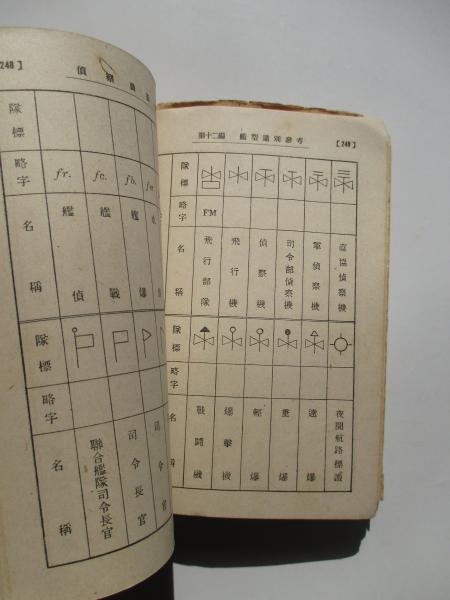 248]
隊標
略字 fr. fc. fb.
名稱 艦偵 艦戰 艦爆
隊標
略字
名稱 聯合艦隊司令長官 司令長官
第十二編 艦型識別參考 [249]
隊標
略字 FM
名稱 飛行部隊 飛行機 偵察機 司令部偵察機 軍偵察機 直協偵察機
隊標
略字
名稱 戰鬪機 爆擊機 輕爆 重爆 遠爆 夜間航路標識